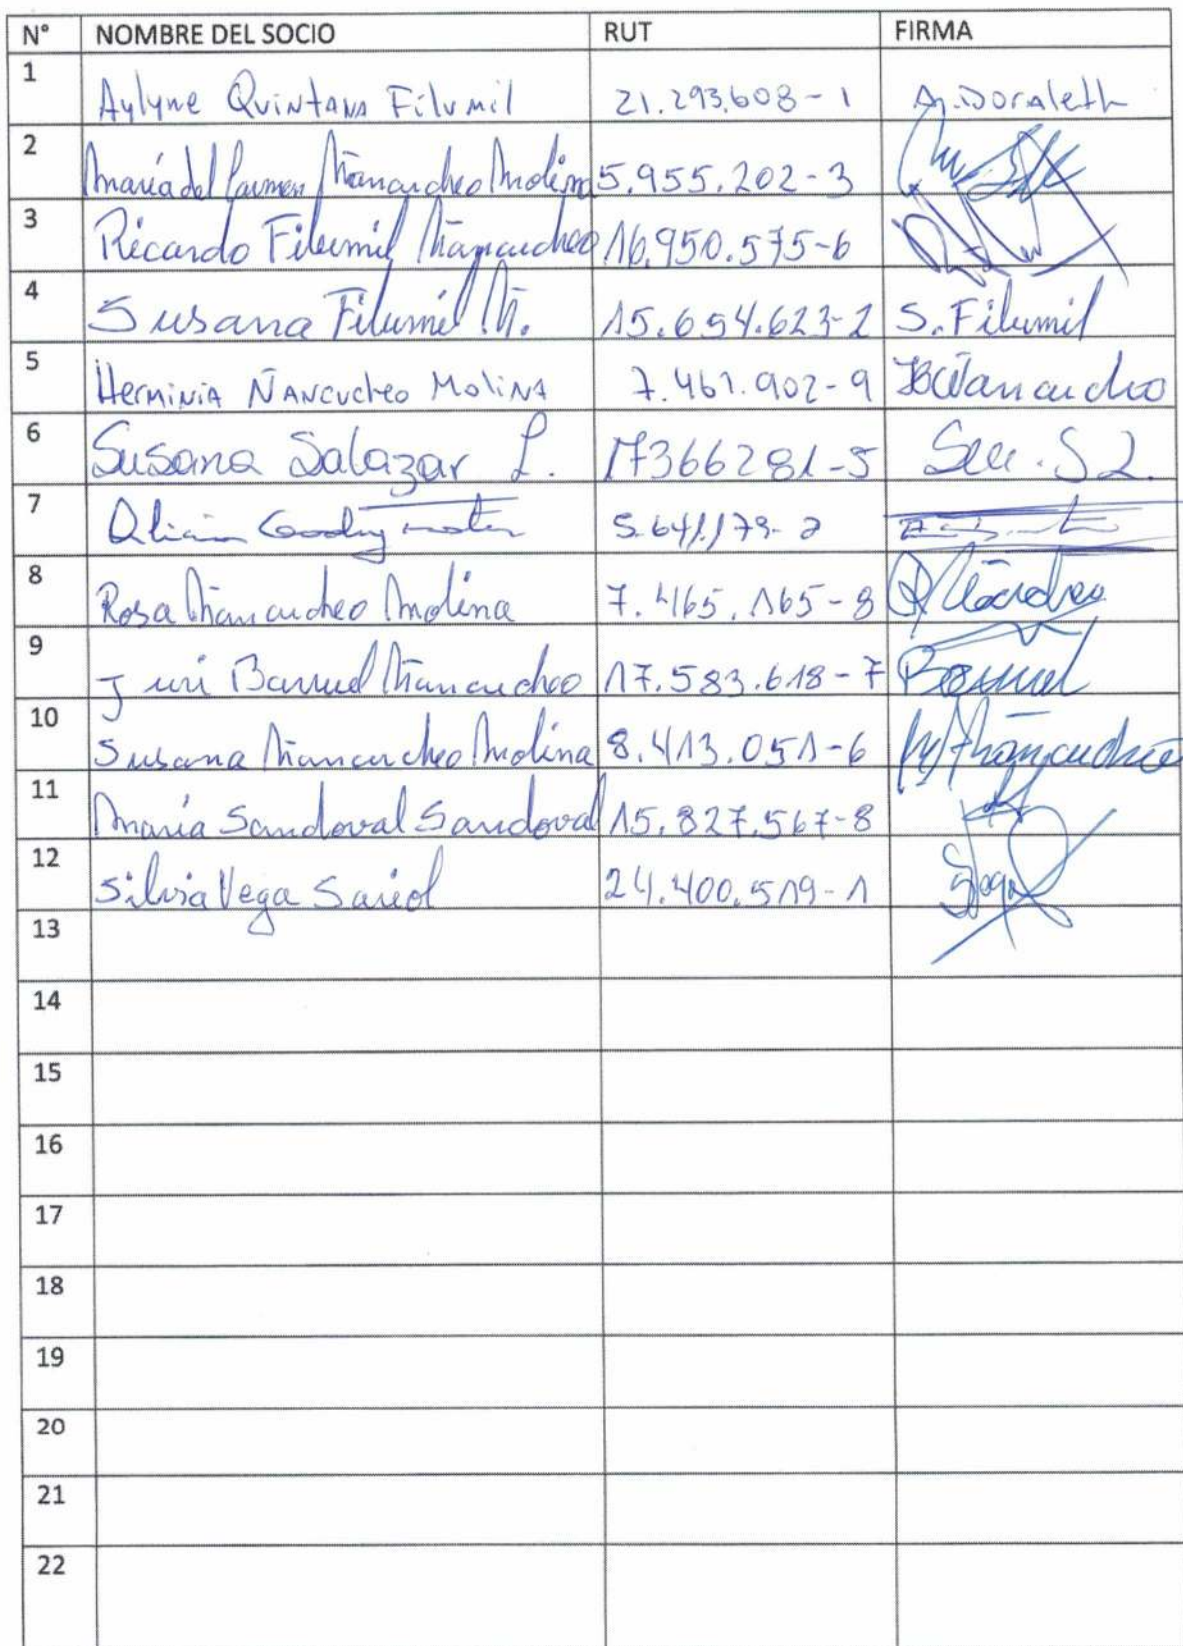 N° NOMBRE DEL SOCIO RUT FIRMA
1 Aylyne Quintana Filumil 21.293.608-1 A. Doraleth
2 María del Carmen Ñancucheo Molina 5.955.202-3
3 Ricardo Filumil Ñancucheo 16.950.575-6
4 Susana Filumil Ñ. 15.654.623-2 S. Filumil
5 Herminia Ñancucheo Molina 7.461.902-9 Ñancucheo
6 Susana Salazar L. 17366281-5
7 5.641.179-2
8 Rosa Ñancucheo Molina 7.465.165-8
9 Juri Barruel Ñancucheo 17.583.618-7 Barruel
10 Susana Ñancucheo Molina 8.413.051-6 Ñancucheo
11 María Sandoval Sandoval 15.827.567-8
12 Silvia Vega Sariol 24.400.519-1
13
14
15
16
17
18
19
20
21
22